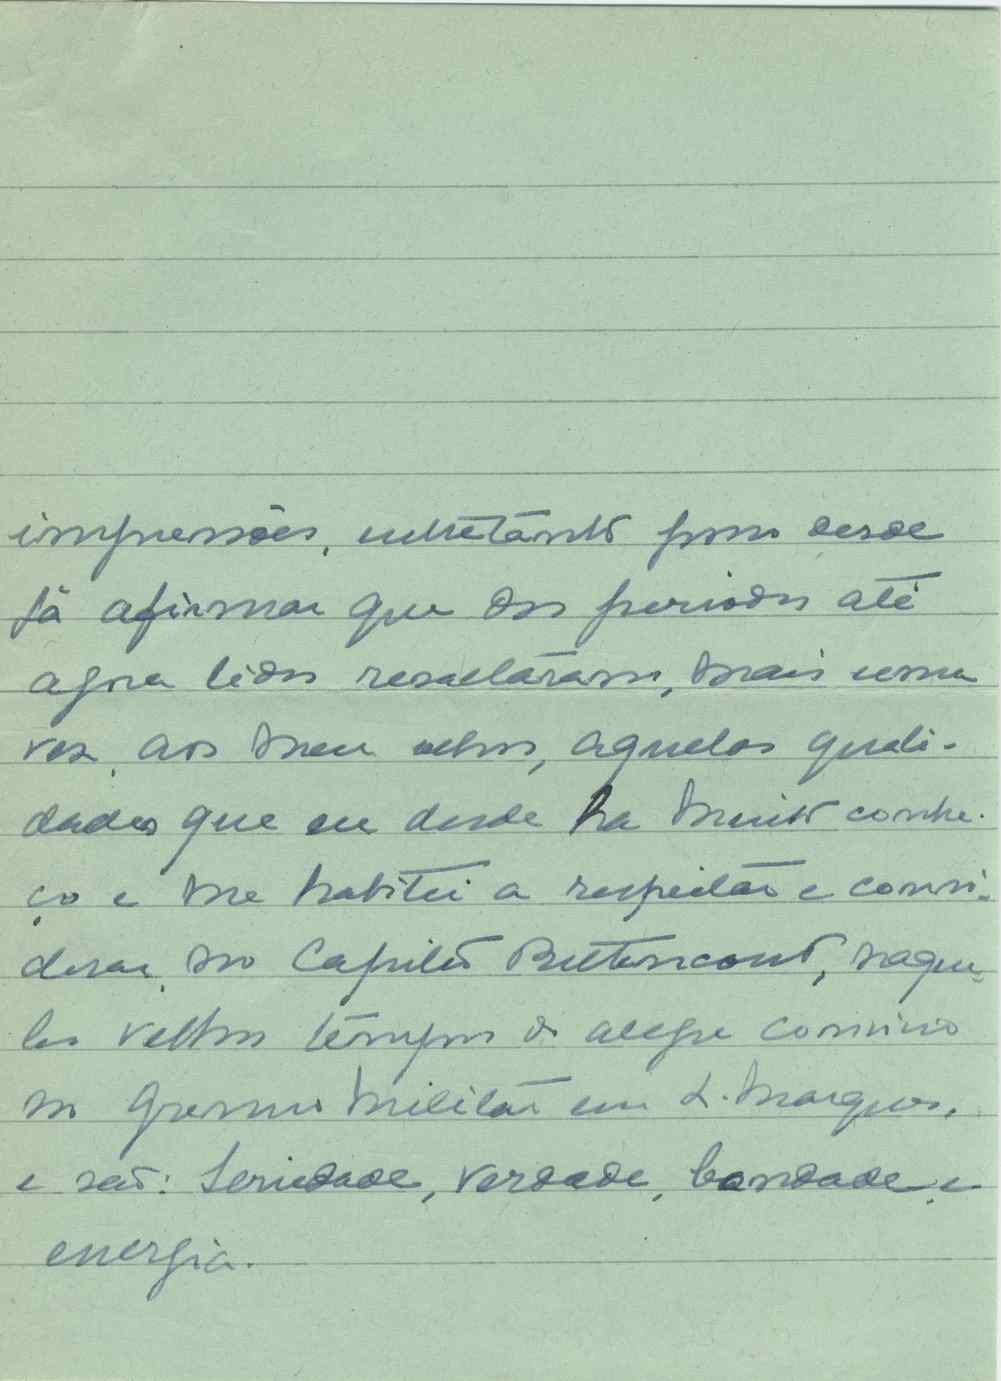 impressões, entretanto posso desde
já afirmar que dos periodos até
agora lidos resaltáram, mais uma
vez, aos meus olhos, aquelas quali-
dades que eu desde ha muito conhe-
ço e me habituei a respeitar e consi-
derar, no Capitão Bettencourt, naque-
les velhos tempos de alegre convivio
no Gremio Militar em L. Marques,
e são: Seriedade, verdade, bondade e
energia.